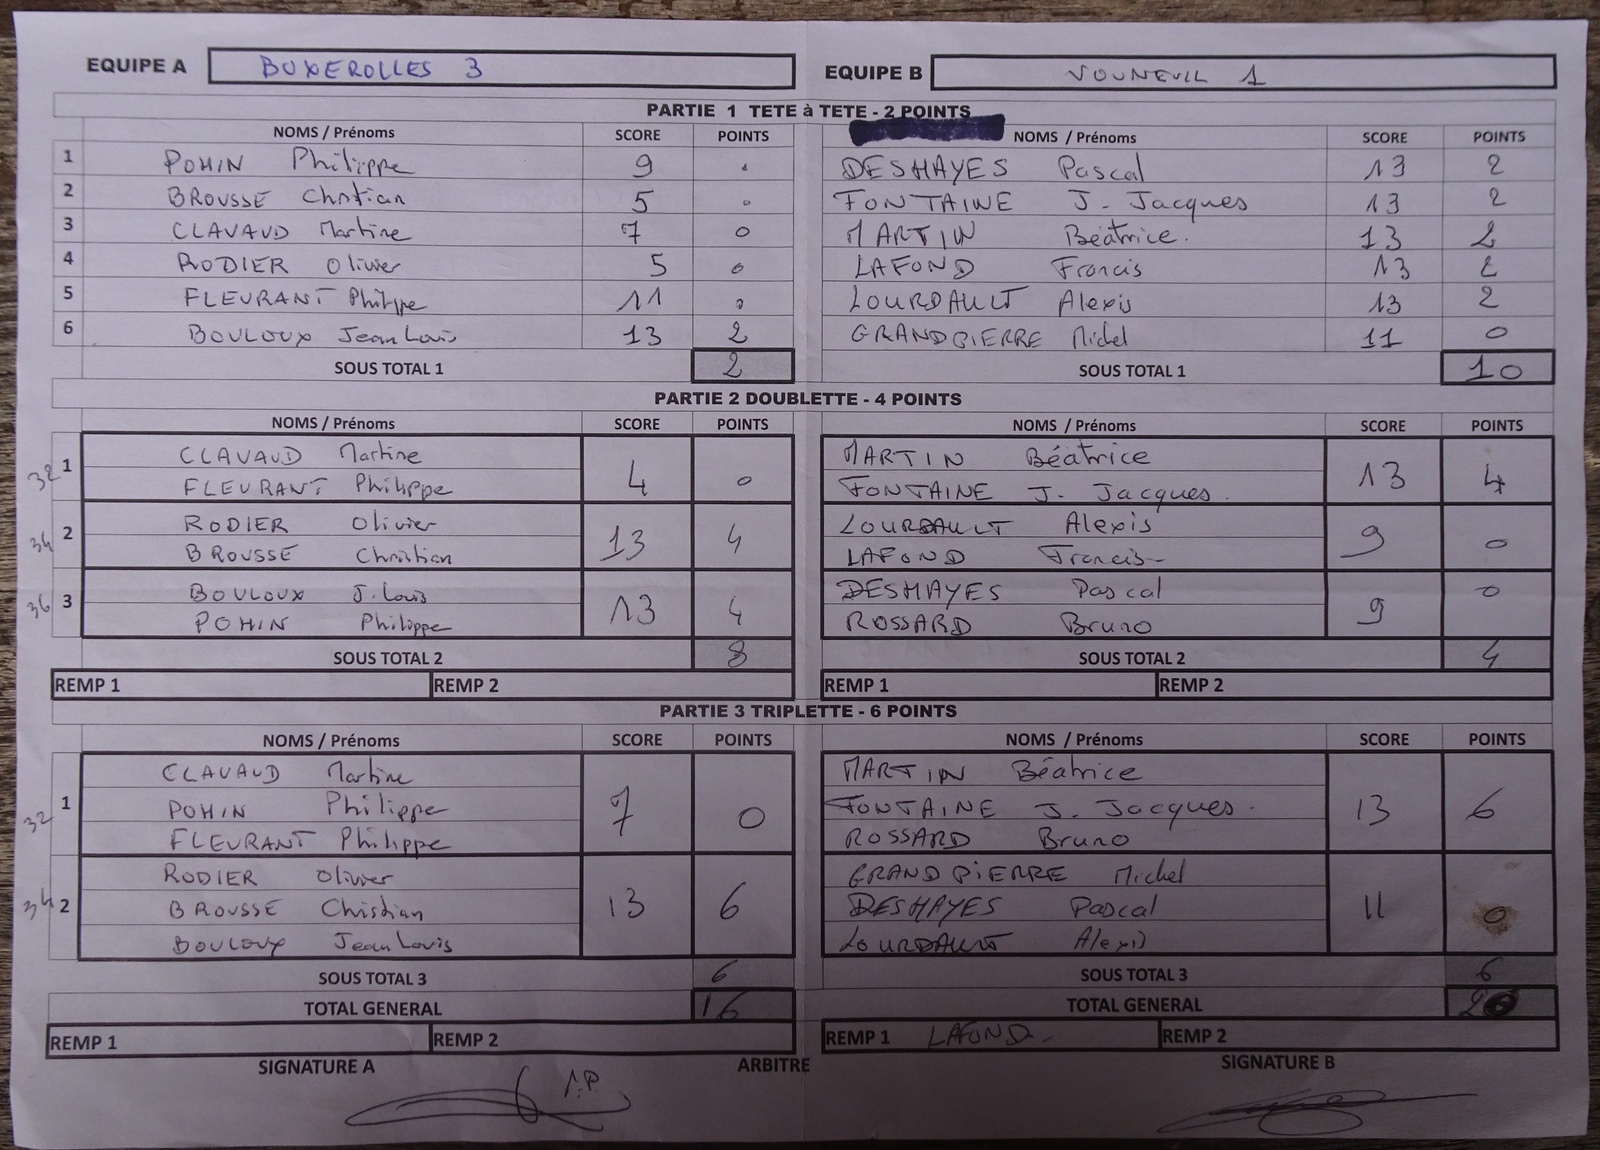 EQUIPE A BUXEROLLES 3 EQUIPE B VOUNEUIL 1
PARTIE 1 TETE à TETE - 2 POINTS
NOMS / Prénoms SCORE POINTS NOMS / Prénoms SCORE POINTS
1 POHIN Philippe 9 0 DESHAYES Pascal 13 2
2 BROUSSE Christian 5 0 FONTAINE J. Jacques 13 2
3 CLAVAUD Martine 7 0 MARTIN Béatrice. 13 2
4 RODIER Olivier 5 0 LAFOND Francis 13 2
5 FLEURANT Philippe 11 0 LOURDAULT Alexis 13 2
6 BOULOUX Jean Louis 13 2 GRANDPIERRE Michel 11 0
SOUS TOTAL 1 2 SOUS TOTAL 1 10
PARTIE 2 DOUBLETTE - 4 POINTS
NOMS / Prénoms SCORE POINTS NOMS / Prénoms SCORE POINTS
32 1 CLAVAUD Martine 4 0 MARTIN Béatrice 13 4
FLEURANT Philippe FONTAINE J. Jacques.
34 2 RODIER Olivier 13 4 LOURDAULT Alexis 9 0
BROUSSE Christian LAFOND Francis
36 3 BOULOUX J. Louis 13 4 DESHAYES Pascal 9 0
POHIN Philippe ROSSARD Bruno
SOUS TOTAL 2 8 SOUS TOTAL 2 4
REMP 1 REMP 2 REMP 1 REMP 2
PARTIE 3 TRIPLETTE - 6 POINTS
NOMS / Prénoms SCORE POINTS NOMS / Prénoms SCORE POINTS
CLAVAUD Martine MARTIN Béatrice
32 1 POHIN Philippe 7 0 FONTAINE J. Jacques. 13 6
FLEURANT Philippe ROSSARD Bruno
RODIER Olivier GRANDPIERRE Michel
34 2 BROUSSE Christian 13 6 DESHAYES Pascal 11 0
BOULOUX Jean Louis LOURDAULT Alexis
SOUS TOTAL 3 6 SOUS TOTAL 3 6
TOTAL GENERAL 16 TOTAL GENERAL 20
REMP 1 REMP 2 REMP 1 LAFOND REMP 2
SIGNATURE A ARBITRE SIGNATURE B